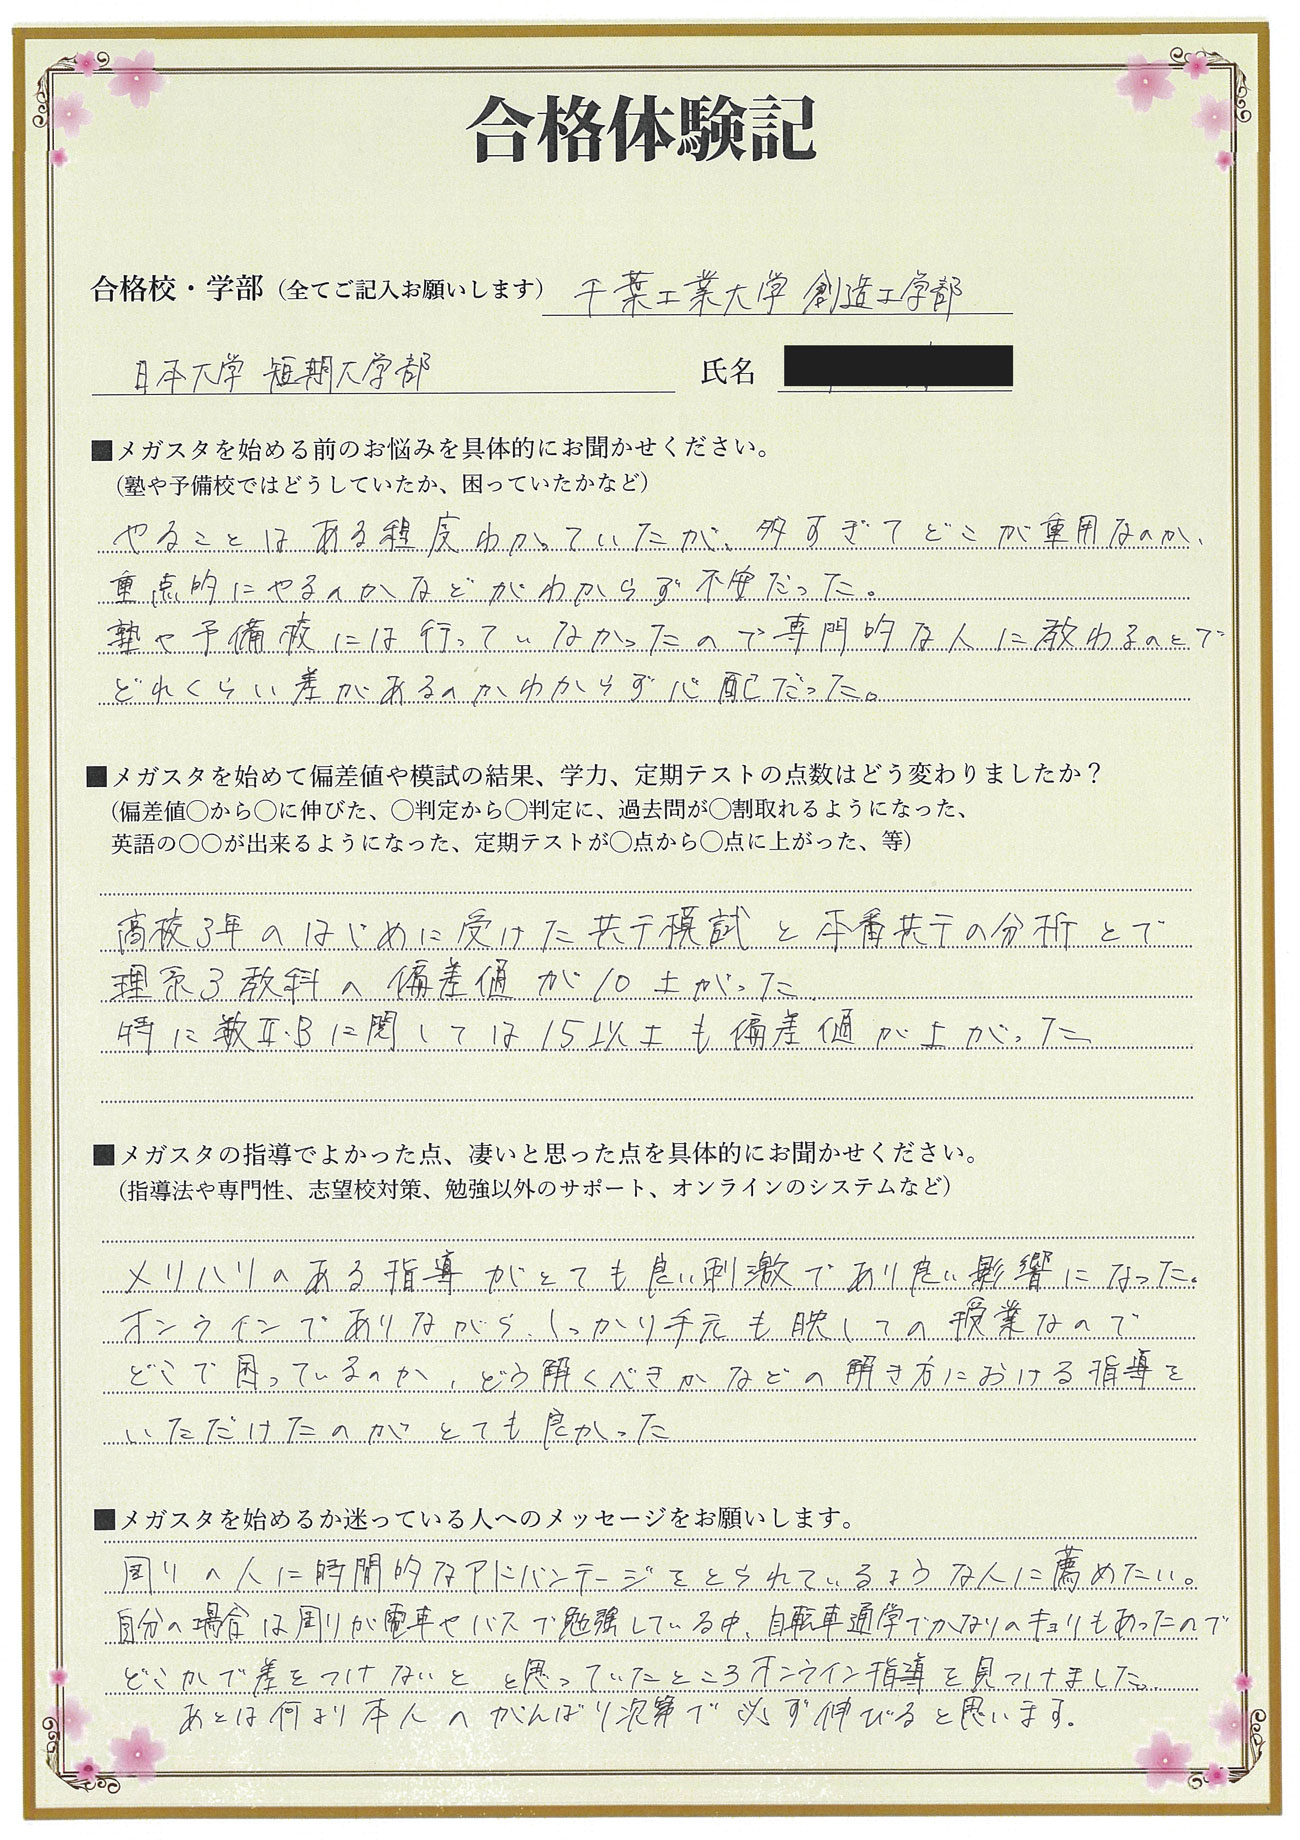 合格体験記
合格校・学部（全てご記入お願いします） 千葉工業大学 創造工学部
日本大学 短期大学部 氏名
■メガスタを始める前のお悩みを具体的にお聞かせください。
（塾や予備校ではどうしていたか、困っていたかなど）
やることはある程度わかっていたが、多すぎてどこが重用なのか、
重点的にやるのかなどがわからず不安だった。
塾や予備校には行っていなかったので専門的な人に教わるのとで
どれくらい差があるのかわからず心配だった。
■メガスタを始めて偏差値や模試の結果、学力、定期テストの点数はどう変わりましたか？
（偏差値〇から〇に伸びた、〇判定から〇判定に、過去問が〇割取れるようになった、
英語の〇〇が出来るようになった、定期テストが〇点から〇点に上がった、等）
高校3年のはじめに受けた共テ模試と本番共テの分析とで
理系3教科の偏差値が10上がった
特に数Ⅱ・Bに関しては15以上も偏差値が上がった
■メガスタの指導でよかった点、凄いと思った点を具体的にお聞かせください。
（指導法や専門性、志望校対策、勉強以外のサポート、オンラインのシステムなど）
メリハリのある指導がとても良い刺激であり良い影響になった。
オンラインでありながら、しっかり手元も映しての授業なので
どこで困っているのか、どう解くべきかなどの解き方における指導を
いただけたのがとても良かった
■メガスタを始めるか迷っている人へのメッセージをお願いします。
周りの人に時間的なアドバンテージをとられているような人に薦めたい。
自分の場合は周りが電車やバスで勉強している中、自転車通学でかなりのキョリもあったので
どこかで差をつけないと と思っていたところオンライン指導を見つけました。
あとは何より本人のがんばり次第で必ず伸びると思います。